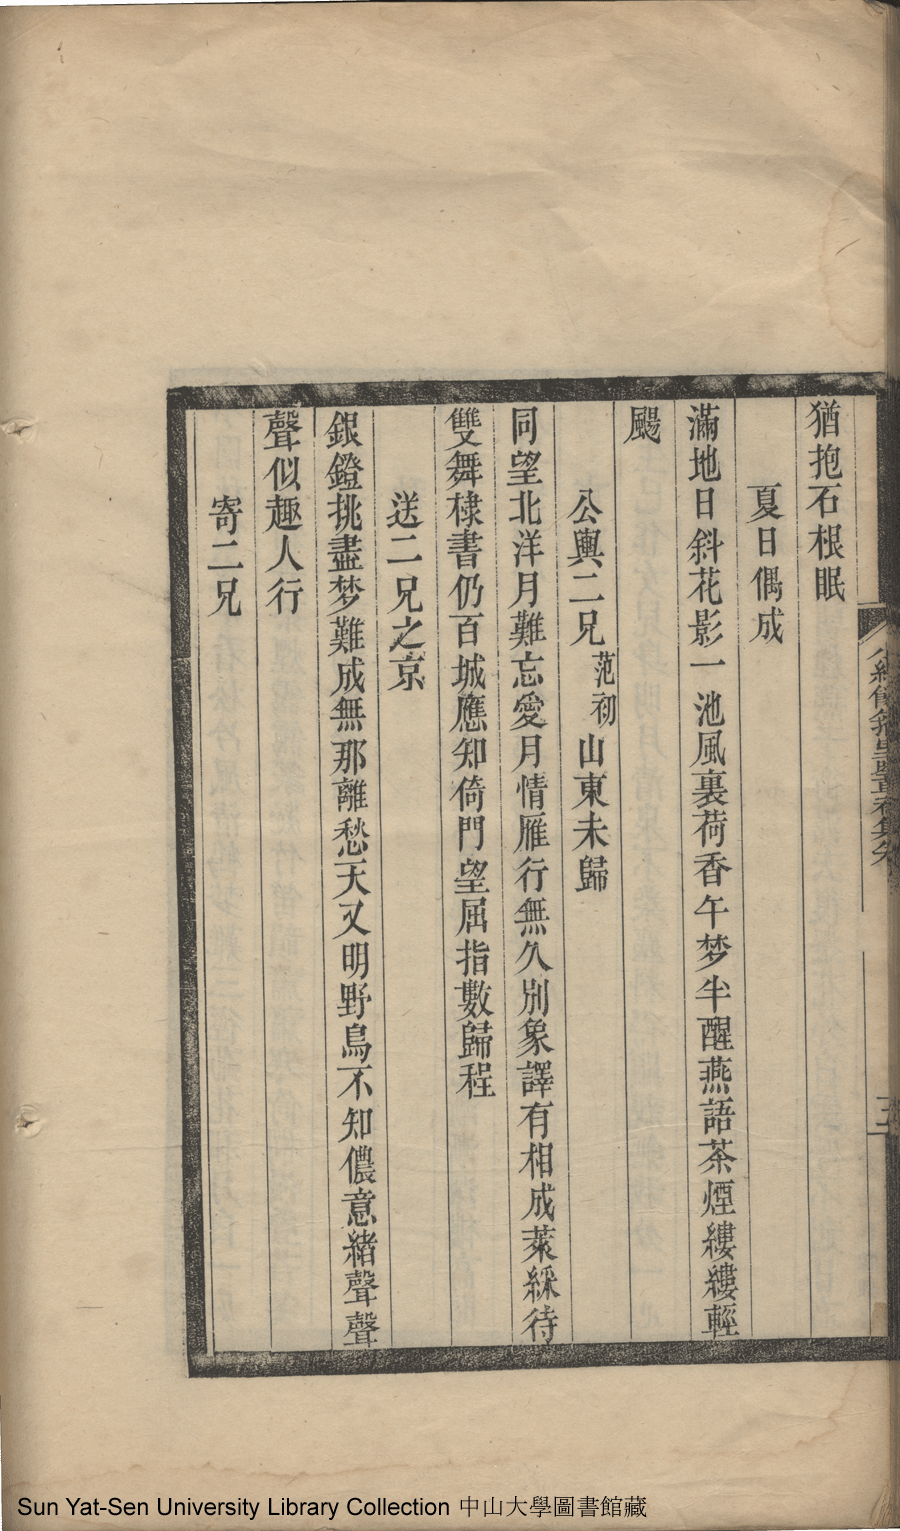 猶抱石根眠
夏日偶成
滿地日斜花影一池風裏荷香午梦半醒燕語茶煙縷縷輕
颺
公輿二兄范初山東未歸
同望北洋月難忘愛月情雁行無久別象譯有相成萊綵待
雙舞棣書仍百城應知倚門望屈指數歸程
送二兄之京
銀鐙挑盡梦難成無那離愁天又明野鳥不知儂意緒聲聲
聲似趣人行
寄二兄
Sun Yat-Sen University Library Collection 中山大學圖書館藏